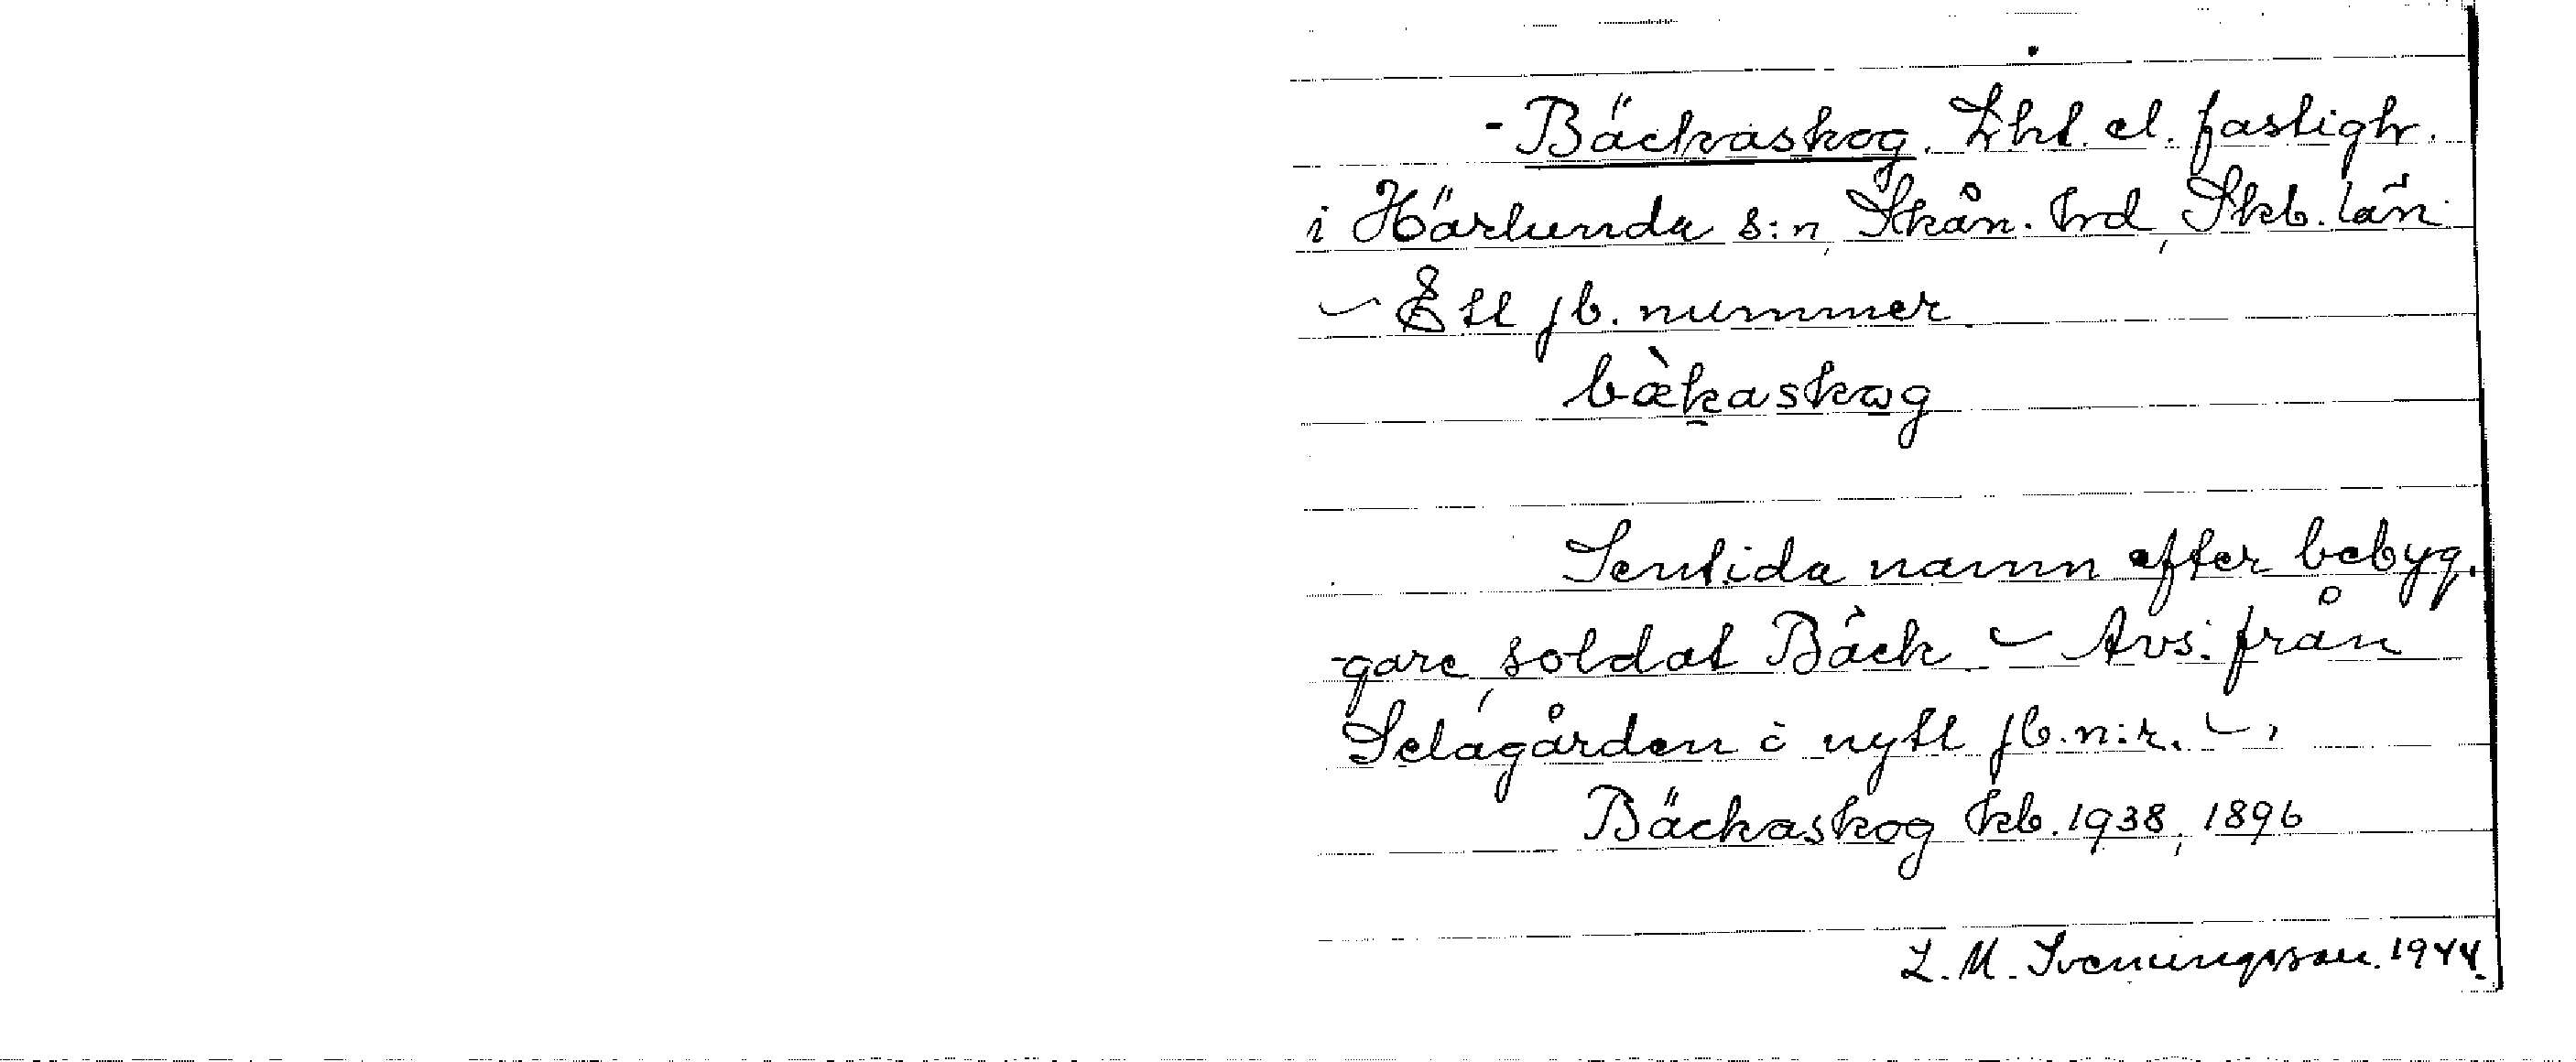 - Bäckaskog. Lht. el. fastigh.
i Härlunda s:n, Skån. hrd, Skb. län
– Ett jb. nummer
bækaskog
Sentida namn efter bebyg.
-gare, soldat Bäck – Avs. från
Selagården i nytt jb.n:r. –.
Bäckaskog kb. 1938, 1896
L. M. Svenungsson. 1944.